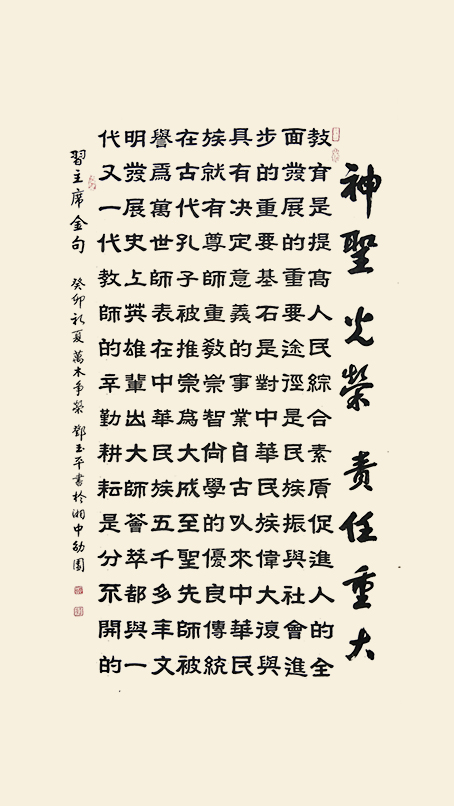 神聖光榮 責任重大
教育是提髙人民綜合素質促進人的全
面發展的重要途徑是民族振興社會進
步的重要基石是對中華民族偉大復興
具有决定意義的事業自古以來中華民
族就有尊師重教崇智尚學的優良傳統
在古代孔子被推崇為大成至聖先師被
譽爲萬世師表在中華民族五千多年文
明發展史上英雄輩出大師薈萃都與一
代又一代教師的辛勤耕耘是分不開的
習主席金句 癸卯初夏萬木爭榮 鄧玉平書於湘中幼園